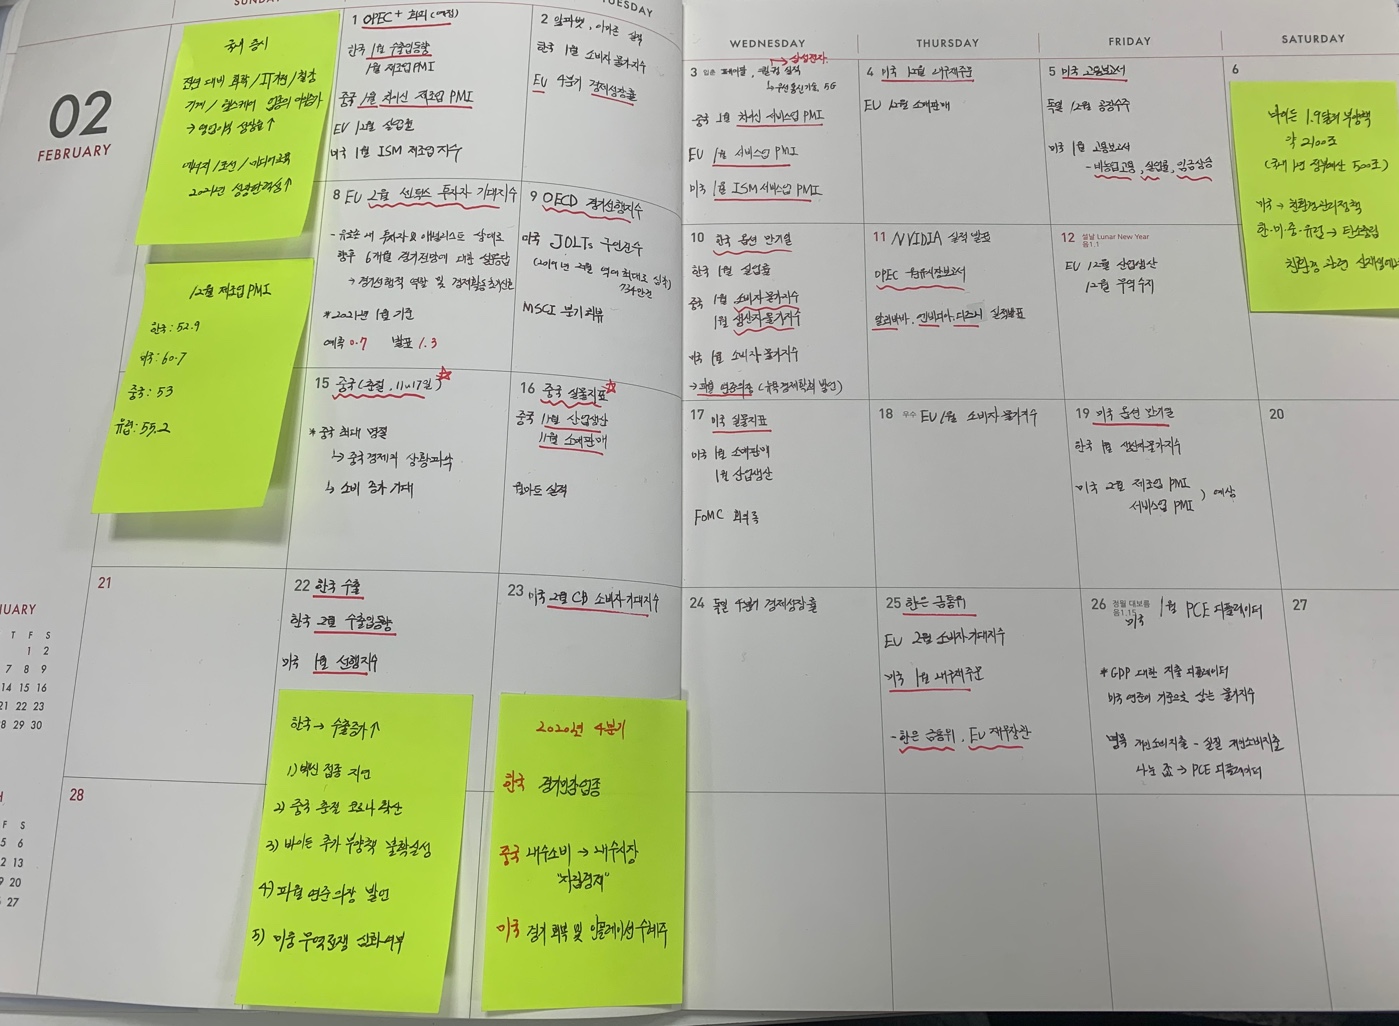 02
FEBRUARY
SUNDAY
TUESDAY
WEDNESDAY
THURSDAY
FRIDAY
SATURDAY
국내 증시
전년 대비 화학/IT가전/철강
기계/헬스케어 업종의
→ 영업이익 상향률↑
에너지/조선/미디어교육
2021년 성장
12월 제조업 PMI
한국: 52.9
미국: 60.7
중국: 53
유럽: 55.2
1 OPEC+ 회의(예정)
한국 1월 수출입동향
1월 제조업 PMI
중국 1월 차이신 제조업 PMI
EU 12월 실업률
미국 1월 ISM 제조업지수
2 알파벳, 아마존 실적
한국 1월 소비자물가지수
EU 4분기 경제성장률
3 입춘 페이팔, 퀄컴 실적
→ 삼성전자
↳ 무선통신기술, 5G
중국 1월 차이신 서비스업 PMI
EU 1월 서비스업 PMI
미국 1월 ISM 서비스업 PMI
4 미국 12월 내구재주문
EU 12월 소매판매
5 미국 고용보고서
독일 12월 공장수주
미국 1월 고용보고서
- 비농업고용, 실업률, 임금상승
6
바이든 1.9조달러 부양책
약 2100조
(국내 1년 정부예산 500조)
미국 → 친환경산업정책
한·미·중·유럽 → 탄소중립
친환경 관련
8 EU 2월 센틱스 투자자 기대지수
- 유로존 내 투자자 & 애널리스트 상대로
향후 6개월 경기전망에 대한 설문응답
→ 경기선행적 역할 및
* 2021년 1월 기준
예측 0.7 발표 1.3
9 OECD 경기선행지수
미국 JOLTs 구인건수
MSCI 분기 리뷰
10 한국 옵션 만기일
한국 1월 실업률
중국 1월 소비자물가지수
1월 생산자물가지수
미국 1월 소비자물가지수
→ 파월 연준의장 (뉴욕경제클럽 발언)
11 NVIDIA 실적 발표
OPEC 월간시장보고서
알리바바, 엔비디아, 디즈니 실적발표
12 설날 Lunar New Year
음1.1
EU 12월 산업생산
12월 무역수지
15 중국(춘절, 11~17일)
* 중국 최대 명절
↳ 중국경제의 상황파악
↳ 소비 증가 기대
16 중국 실물지표
중국 11월 산업생산
11월 소매판매
월마트 실적
17 미국 실물지표
미국 1월 소매판매
1월 산업생산
FOMC 회의록
18 우수 EU 1월 소비자물가지수
19 미국 옵션 만기일
한국 1월 생산자물가지수
미국 2월 제조업 PMI
서비스업 PMI ) 예상
20
21
22 한국 수출
한국 2월 수출입동향
미국 1월 선행지수
23 미국 2월 CB 소비자기대지수
24 독일 4분기 경제성장률
25 한은 금통위
EU 2월 소비자기대지수
미국 1월 내구재주문
- 한은 금통위, EU 재무장관
26 정월 대보름
음1.15
미국 1월 PCE 디플레이터
* GDP 대한 지출 디플레이터
미국 연준이 기준으로 삼는 물가지수
명목 개인소비지출 - 실질 개인소비지출
나눈 값 → PCE 디플레이터
27
28
한국 → 수출증가↑
1) 백신 접종 지연
2) 중국 춘절 코로나 확산
3) 바이든 추가 부양책 불확실성
4) 파월 연준의장 발언
5) 미중 무역전쟁 심화여부
2020년 4분기
한국 경기민감업종
중국 내수소비 → 내수시장
"자립경제"
미국 경기 회복 및 인플레이션 수혜주
T F S
1 2
7 8 9
14 15 16
21 22 23
28 29 30
F S
5 6
12 13
19 20
27